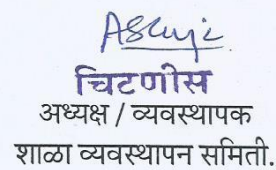 चिटणीस
अध्यक्ष / व्यवस्थापक
शाळा व्यवस्थापन समिती.